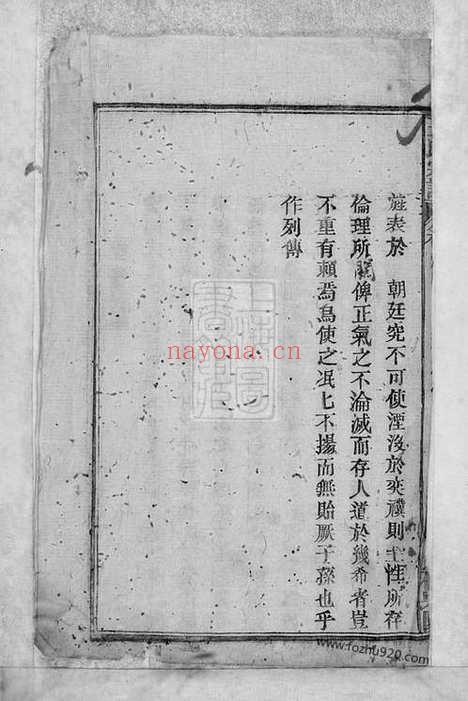 旌表於　朝廷究不可使湮沒於奕禩則至性所存
倫理所關俾正氣之不淪滅而存人道於幾希者豈
不重有賴焉烏使之泯匕不揚而無貽厥子孫也乎
作列傳
nayona.cn
www.fozhu920.com